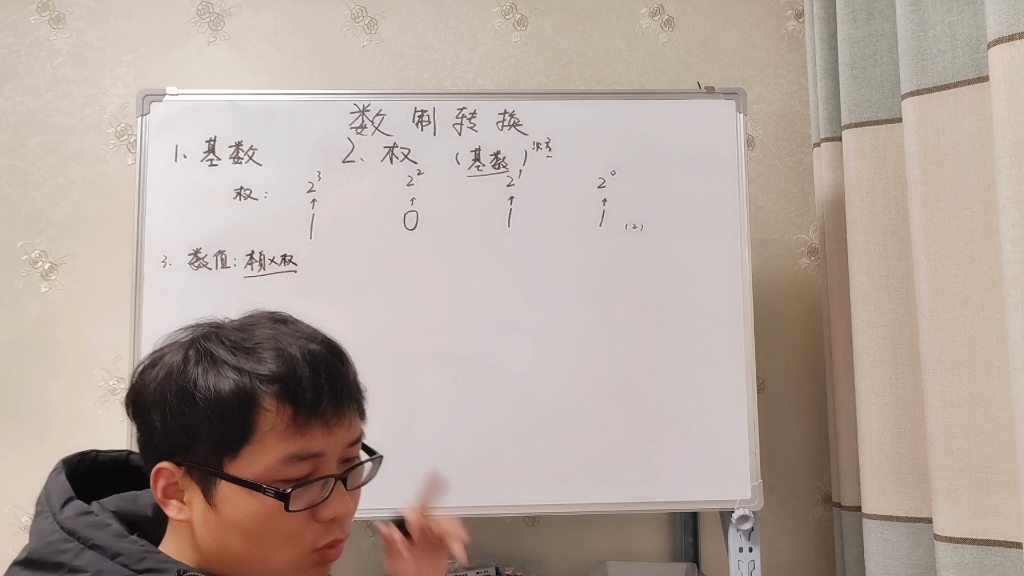 数制转换
1. 基数 2. 权 (基数)次方
权: 2³ 2² 2¹ 2⁰
↑ ↑ ↑ ↑
1 0 1 1 (2)
3. 数值: 本身×权